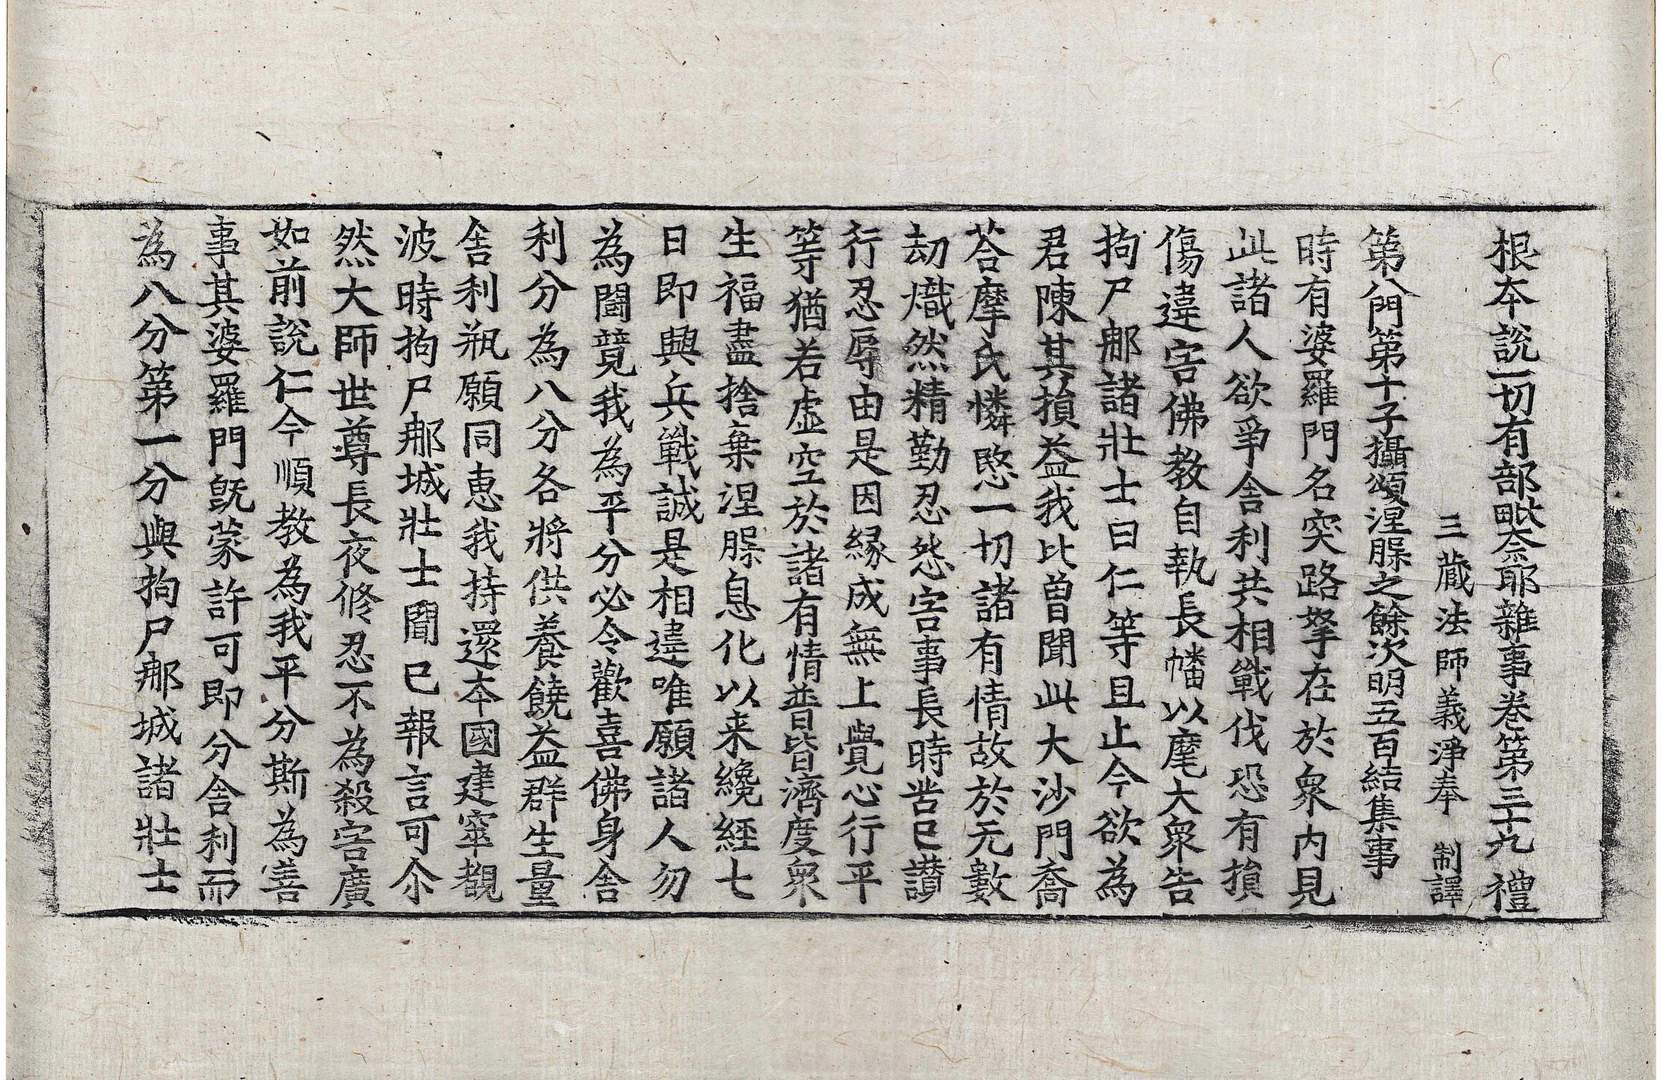 根本說一切有部毗奈耶雜事卷第三十九 禮
三藏法師義淨奉 制譯
第八門第十子攝頌涅槃之餘次明五百結集事
時有婆羅門名突路拏在於衆內見
此諸人欲爭舍利共相戰伐恐有損
傷違害佛教自執長幡以麾大衆告
拘尸那諸壯士曰仁等且止今欲為
君陳其損益我比曾聞此大沙門喬
荅摩氏憐愍一切諸有情故於无數
劫熾然精勤忍怨害事長時苦已讚
行忍辱由是因緣成無上覺心行平
等猶若虛空於諸有情普皆濟度衆
生福盡捨棄涅槃息化以来纔經七
日即興兵戰誠是相違唯願諸人勿
為鬪競我為平分必令歡喜佛身舍
利分為八分各將供養饒益群生量
舍利瓶願同惠我持還本國建窣覩
波時拘尸那城壯士聞已報言可尒
然大師世尊長夜修忍不為殺害廣
如前說仁今順教為我平分斯為善
事其婆羅門旣蒙許可即分舍利而
為八分第一分與拘尸那城諸壯士